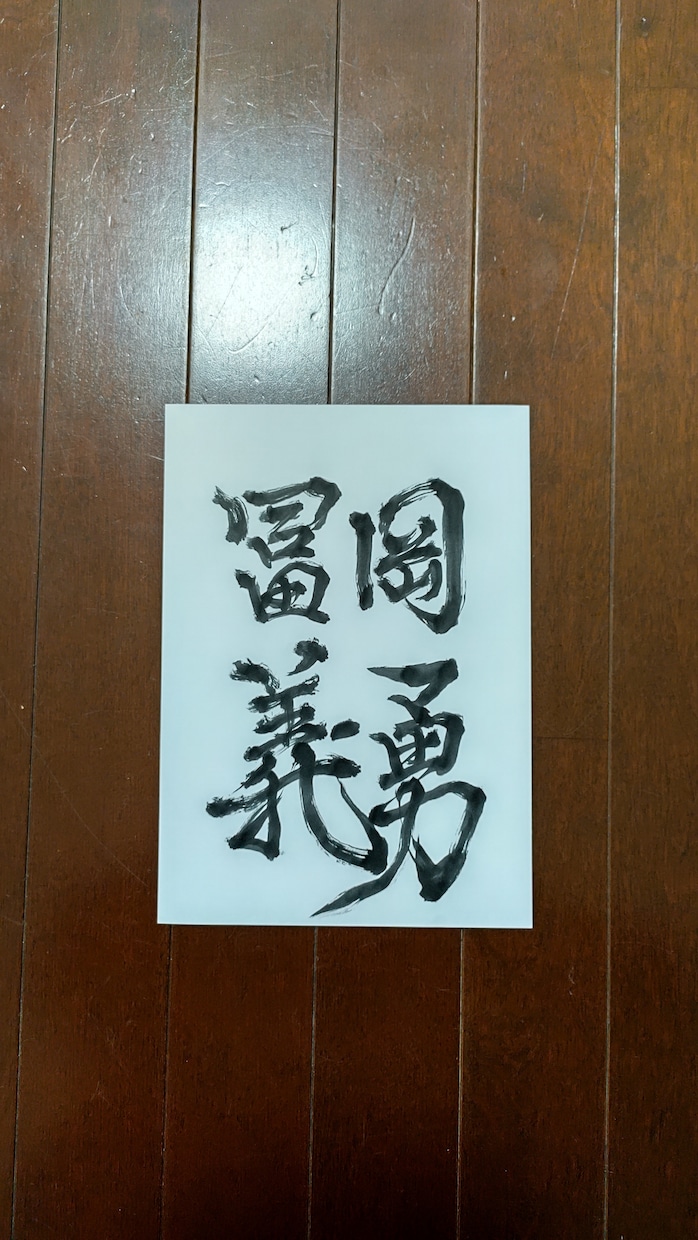 冨岡
義勇